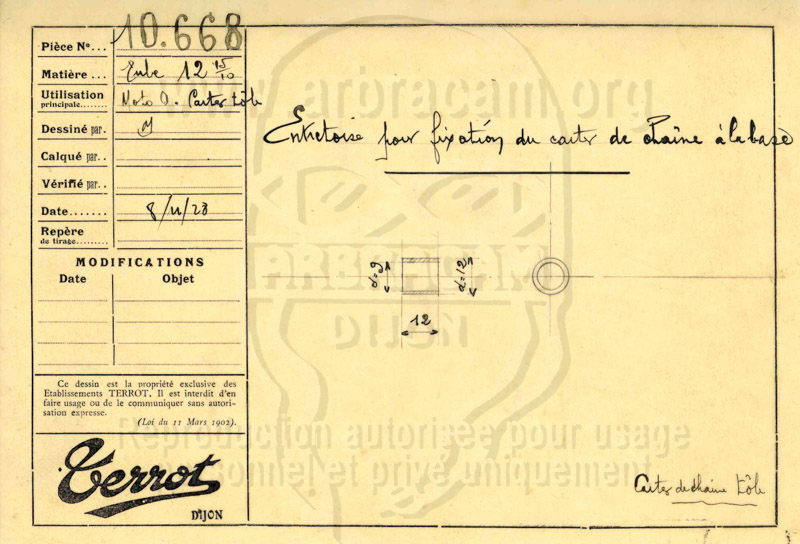 Pièce N°... 10.668
Matière ... Tube 12 15/10
Utilisation
principale........ Moto O. Carter tôle
Dessiné par.
Calqué par..
Vérifié par..
Date....... 8/11/28
Repère
de tirage.........
MODIFICATIONS
Date Objet
Ce dessin est la propriété exclusive des
Etablissements TERROT. Il est interdit d'en
faire usage ou de le communiquer sans autori-
sation expresse.
(Loi du 11 Mars 1902).
Terrot
DIJON
Entretoise pour fixation du carter de chaîne à la base
d=9
d=12
12
Carter de chaine tôle
www.arbracam.org
ARBRACAM
DIJON
Reproduction autorisée pour usage
personnel et privé uniquement